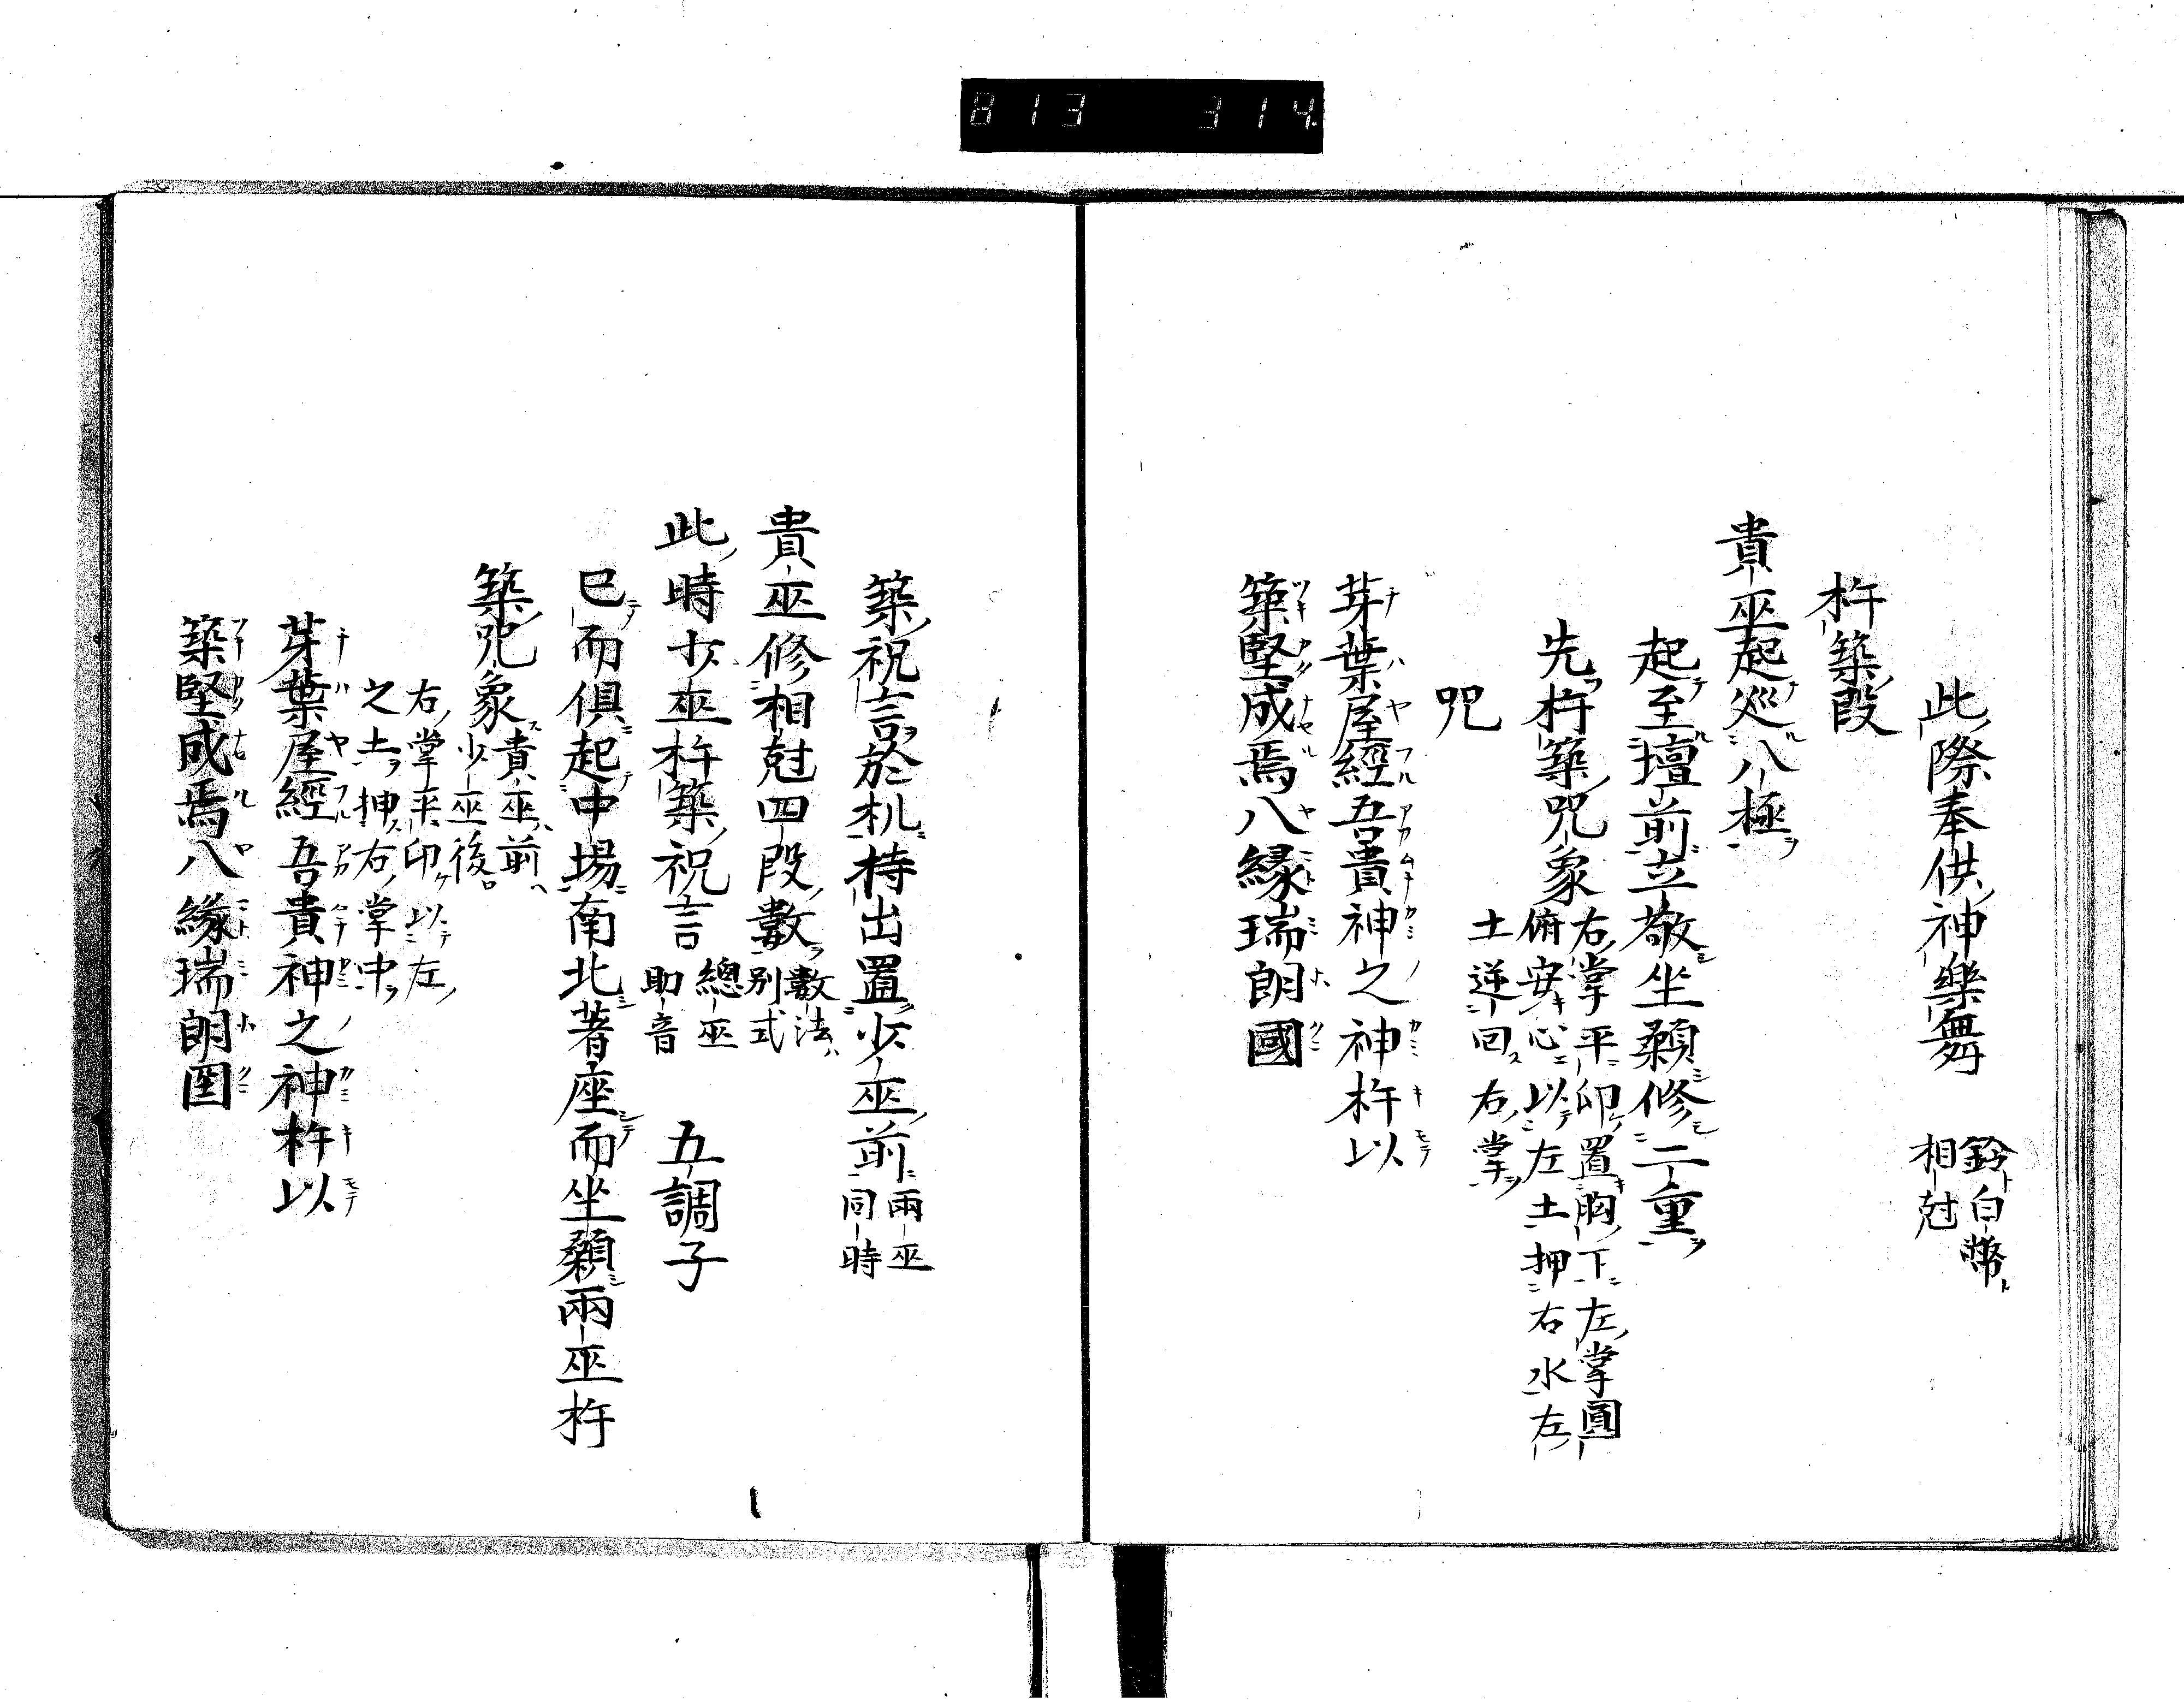 813 314
此際奉供神樂舞 鈴白幣
相尅
杵築段
貴巫起巡八極
起至壇前立敬坐顙修二重
先杵築咒象 右掌平印置胸下左掌圓
俯安心以左土押右水左
土逆回右掌
咒
芽葉屋經吾貴神之神杵以
築堅成焉八縁瑞朗國
築祝言於机持出置少巫前 兩巫
同時
貴巫修相尅四段數 數法
別式
此時少巫杵築祝言 總巫
助音 五調子
已而俱起中場南北著座而坐顙兩巫杵
築咒象 貴巫前
少巫後
右掌平印以左
之土押右掌中
芽葉屋經吾貴神之神杵以
築堅成焉八縁瑞朗国